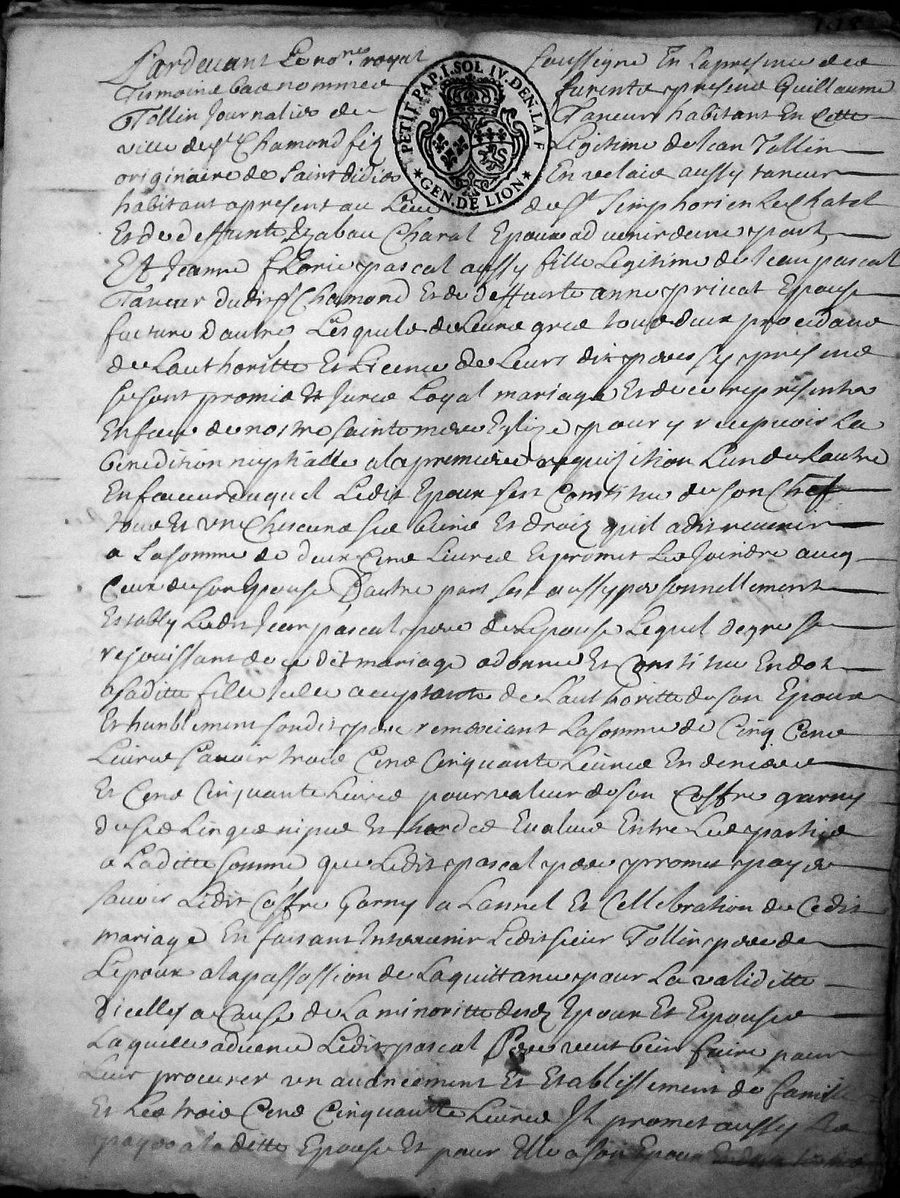 Pardevant Le no.re royal soussigné En La presence des
Tesmoins bas nommés furent presens Guillaume
Tollin Journalier de Taneur habitant En Cette
ville de st Chamond fiz Légitime de Jean Tollin
originaire de Saint didier En velais aussy taneur
habitant apresent au Lieu de st Simphorien Le Chatel
Et de deffunte Izabau Charal Epoux advenir dune part
Et Jeanne florie pascal aussy fille Legitime de Jean pascal
Taneur dudit st Chamond Et de deffunte anne privat Epouse
facture Dautre Lesquels de Leurs gres tous deux procedans
de Lauthoritte Et Licence de Leurs dits peres sy presens
se sont promis Et Jures Loyal mariage Et de ce representer
En face de nostre sainte mere Eglize pour y recepvoir La
benedition nuptialle a la premiere requizition Lun de Lautre
En faveur duquel Ledit Epoux sest Constitue de son Chef
tous Et un Chescuns ses biens Et droiz quil a dit revenir
a La somme de deux Cens Livres Et promet Les Joindre avecq
Ceux de son Epouse Dautre part sest aussy personnellement
Estably Ledit Jean pascal pere de Lepouse Lequel de gre se
rejouissant de ce dit mariage a donne Et Constitue En dot
a saditte fille Icelle acceptante de Lauthoritte de son Epoux
Et humblement son dit pere remerciant La somme de Cinq Cens
Livres scavoir trois Cens Cinquante Livres En deniers
Et Cens Cinquante Livres pour valeur de son Coffre garny
de ses Linges nipes Et hardes Evalues Entre Les parties
a Laditte somme que Ledit pascal pere promet payer
savoir Ledit Coffre Garny a Lannel Et Cellebration de Cedit
mariage En faisant Intervenir Ledit sieur Tollin pere de
Lepoux a la passassion de La quittance pour La validitte
Dicelles a Cause de La minoritte desdz Epoux Et Epouse
Laquelle advence Ledit pascal Pere veut bien faire pour
Leur procurer un avancement Et Etablissement de famille
Et Les trois Cens Cinquante Livres Il promet aussy Les
payer a La ditte Epouse Et pour Elle a son Epoux
PETIT.PAP.I.SOL IV.DEN.LA F
GEN.DE LION